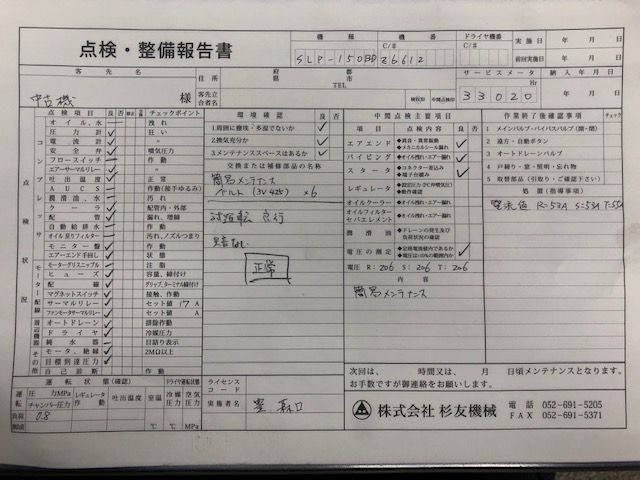 点検・整備報告書
機種 機番 ドライヤ機番 実施日 年 月 日
SLP-150 26612 C/# C/# 前回実施日 年 月 日
客先名 住所 都 府 県 市 郡 サービスメータ 納入年月日
TEL
中古機 様 客先立合者名 検収印 中間点検印 33020 Hr 年 月 日
点検状況
点検項目 良 否 修正 チェックポイント
コンプレッサ
オイル、水 洩れ
圧力計 狂い
電流計 〃
安全弁 噴気圧力
フロースイッチ 作動
エアーサーマルリレー 〃
吐出温度 正常
AUCS 作動(接手ゆるみ)
潤滑油、水 汚れ
クーラ 配管内・外部
配管 漏れ、増締
自動給排水 作動
オイル戻りフィルター 汚れ、ノズルつまり
モニター盤 作動
エアーエンド手回し 状態
モーターグリスニップル 注脂
モーター配線
ヒューズ 容量、締付け
配線 グリップ、ターミナル締付け
マグネットスイッチ 接触、作動
サーマルリレー セット値 17 A
ファンモータサーマルリレー セット値 A
周辺機器
オートドレーン 排除作動
ドライヤ 冷媒圧力
純水器 目詰り表示
その他
モータ、絶縁 2MΩ以上
目標到達圧力
自己診断 作動
環境確認 良 否
1.周囲に塵埃・多湿でないか
2.換気充分か
3.メンテナンススペースはあるか
交換または補修部品の名称
簡易メンテナンス
ベルト (3V425) ×6
試運転 良行
異音なし
正常
中間点検主要項目
項目 点検内容 良 否
エアエンド ◆異音・異常振動
◆メカニカルシール漏れ
パイピング ◆オイル洩れ・エアー漏れ
スタータ ◆コネクター差込み
◆端子台緩み
レギュレータ ◆設定圧力(℃弁噴気圧)
◆動作確認
オイルクーラー ◆オイル洩れ・エアー漏れ
オイルフィルター セパレエレメント ◆オイル洩れ・エアー漏れ
潤滑油 ◆ドレーンの発生及び負荷状況の確認
電圧の測定 ◆定格電流値内であるか
◆電圧は±10%の範囲内か
電圧 R:206 S:206 T:206
内容
簡易メンテナンス
作業終了後確認事項 チェック
1 メインバルブ・バイパスバルブ(開・閉)
2 遠方・自動ボタン
3 オートドレーンバルブ
4 戸締り・窓・照明・忘れ物
5 取替部品(引取り・ご確認下さい)
処置(指導事項)
R=53A S=53A T=55A
次回は、 時間又は、 月 日頃メンテナンスとなります。
お手数ですが御連絡をお願いします。
運転状態(確認)
運転 圧力MPa チャンバー圧力 レギュレータ作動 吐出温度 室温 ドライヤ運転状態 冷媒圧力 空気圧力
負荷 0.8
無負荷 ℃ ℃ MPa
ライセンスコード
実施者名 森口
株式会社 杉友機械 電話 052-691-5205
FAX 052-691-5371